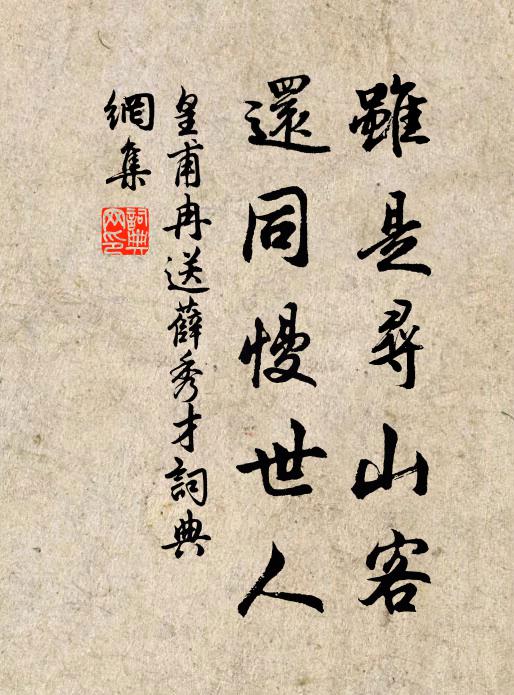 雖是尋山客
還同慢世人
皇甫冉送薛秀才詞典
網集
詞典
网印